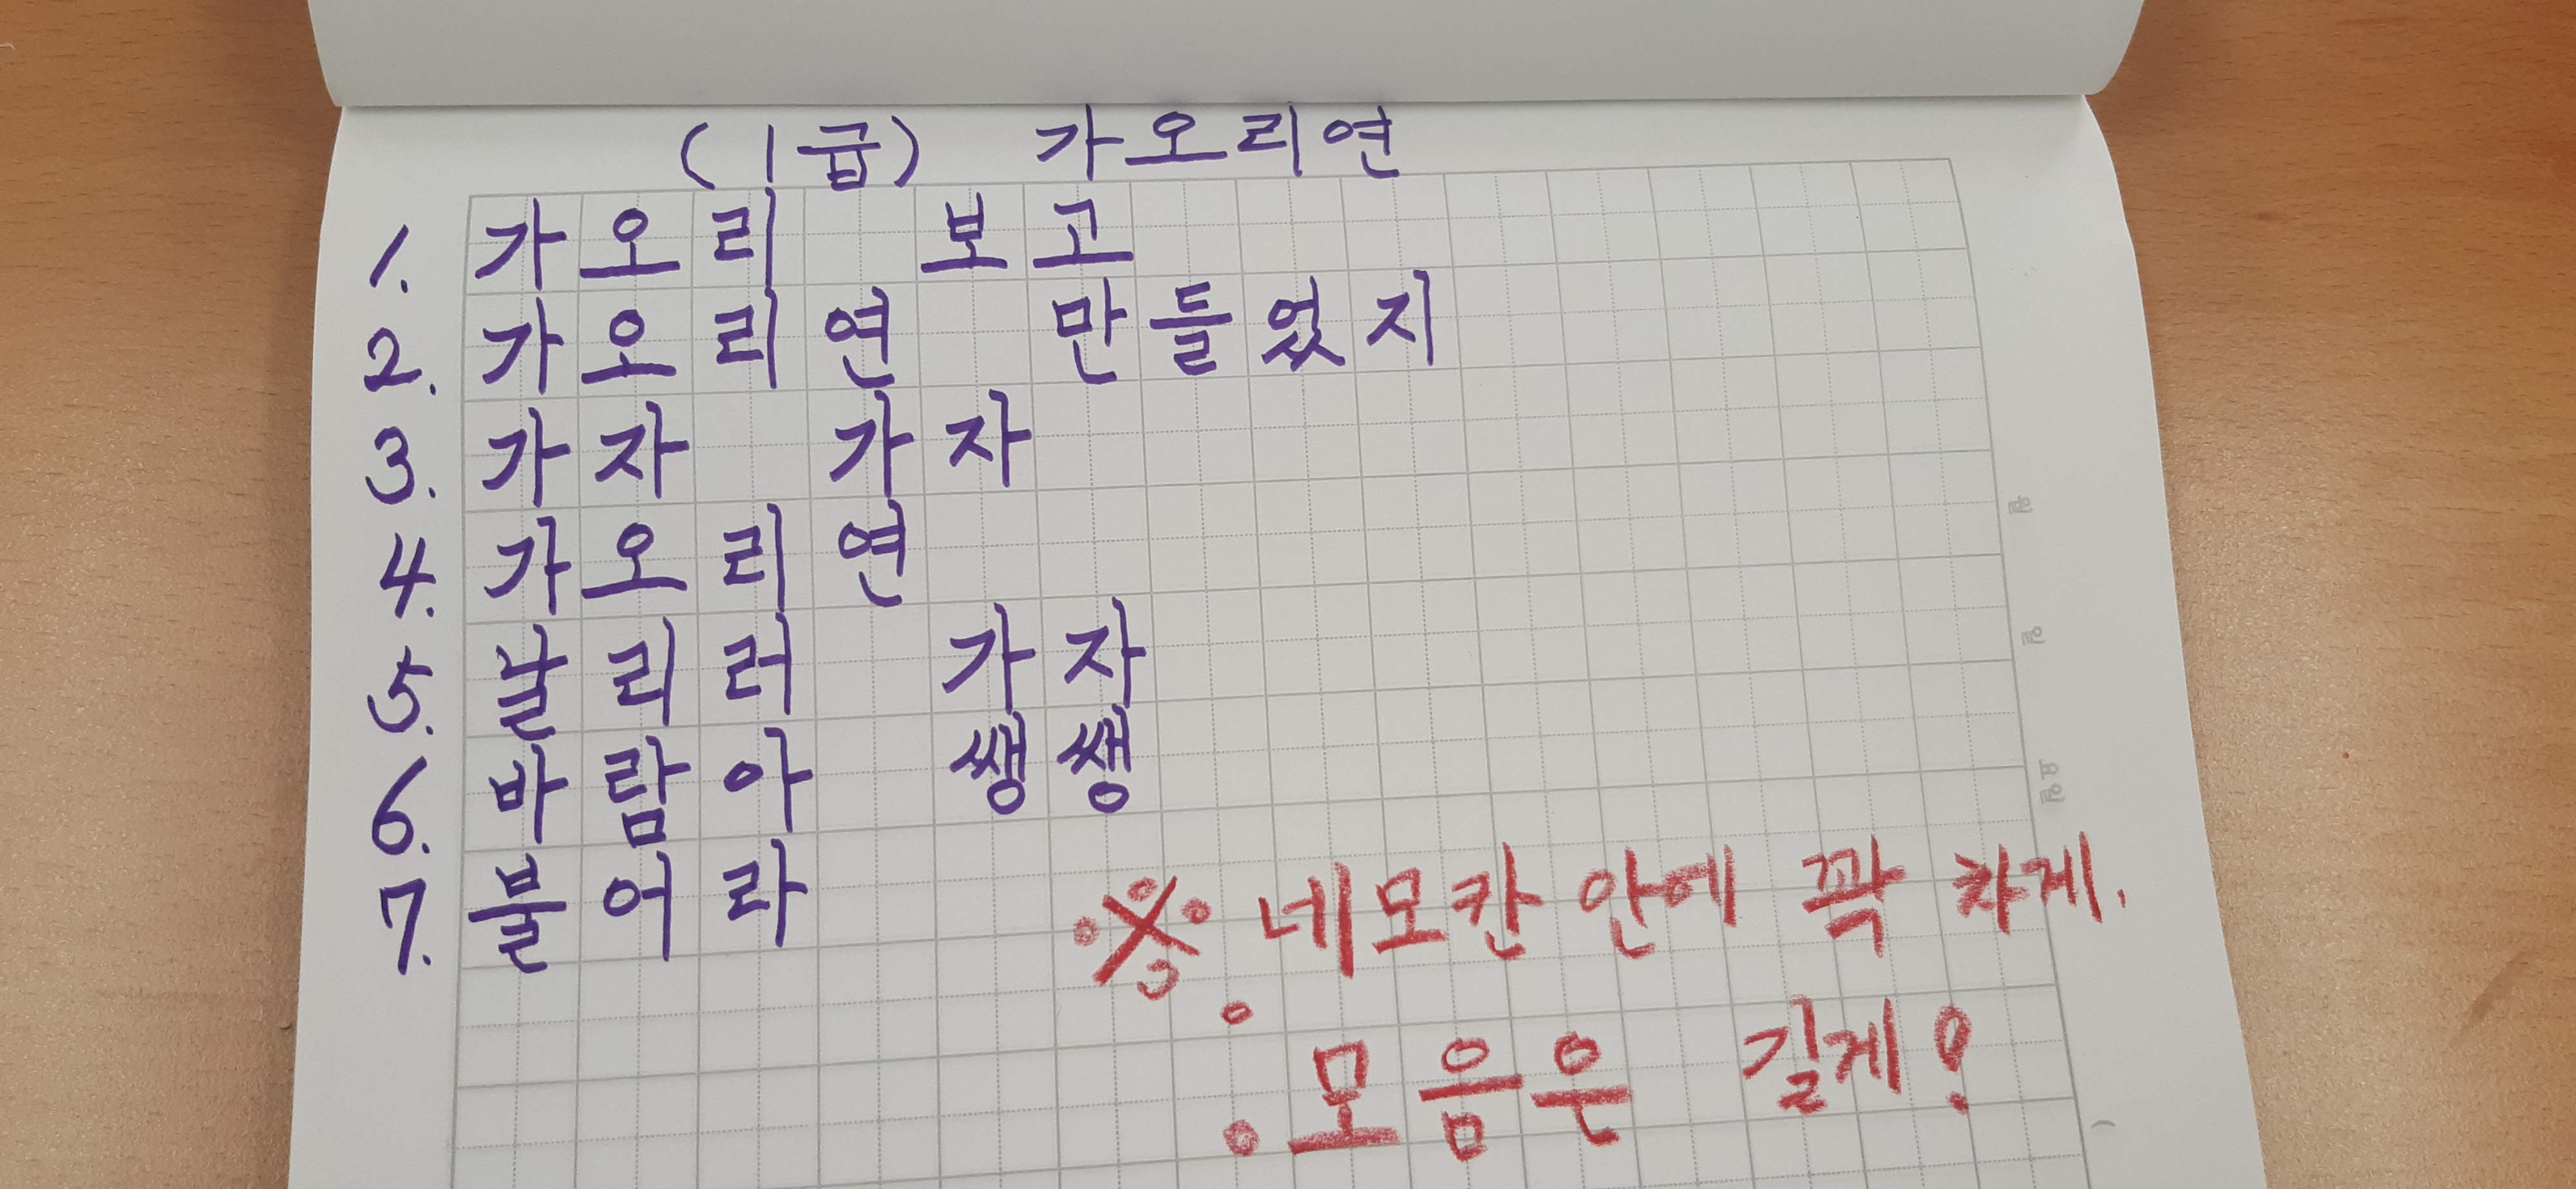 (1급) 가오리연
1. 가오리 보고
2. 가오리연 만들었지
3. 가자 가자
4. 가오리연
5. 날리러 가자
6. 바람아 쌩쌩
7. 불어라
※ 네모칸 안에 꽉 차게.
모음은 길게!
월
일
요일
(